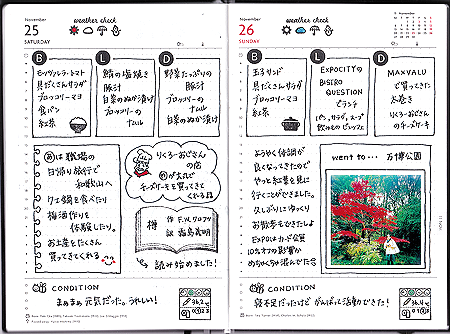 November
25
SATURDAY
weather check
B
モッツァレラ・トマト
具だくさんサラダ
ブロッコリーマヨ
食パン
紅茶
L
鯖の塩焼き
豚汁
白菜のぬか漬け
ブロッコリーの
ナムル
D
野菜たっぷりの
豚汁
ブロッコリーの
ナムル
白菜のぬか漬け
は職場の
日帰り旅行で
和歌山へ
クエ鍋を食べたり
梅酒作りを
体験したり。
お土産をたくさん
買ってきてくれる
りくろーおじさん
の店
が大丸で
チーズケーキを買ってきて
くれる
樽
作 F.W.クロフツ
訳 霜島義明
読み始めました!
CONDITION
まぁまぁ元気だった。うれしい!
November
26
SUNDAY
weather check
11 November
B
玉子サンド
具だくさんサラダ
ブロッコリーマヨ
紅茶
L
EXPOCITYの
BISTRO
QUESTION
でランチ
パン、サラダ、スープ
D
MAXVALU
で買ってきた
太巻き
りくろーおじさん
のチーズケーキ
ようやく体調が
良くなってきたので
やっと紅葉を見に
行くことができました。
久しぶりにゆっくり
お散歩もできたしよ
EXPOはカード会員
10%オフの影響か
めちゃくちゃ混んでた
went to… 万博公園
CONDITION
寝不足だったけどがんばって活動できた!